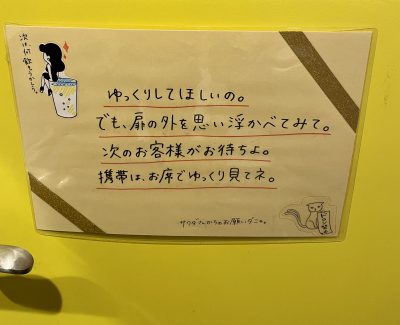 次は、何飲もうかしら。
ゆっくりしてほしいの。
でも、扉の外を思い浮かべてみて。
次のお客様がお待ちよ。
携帯は、お席でゆっくり見てネ。
サウダさんからのお願いダニャ。